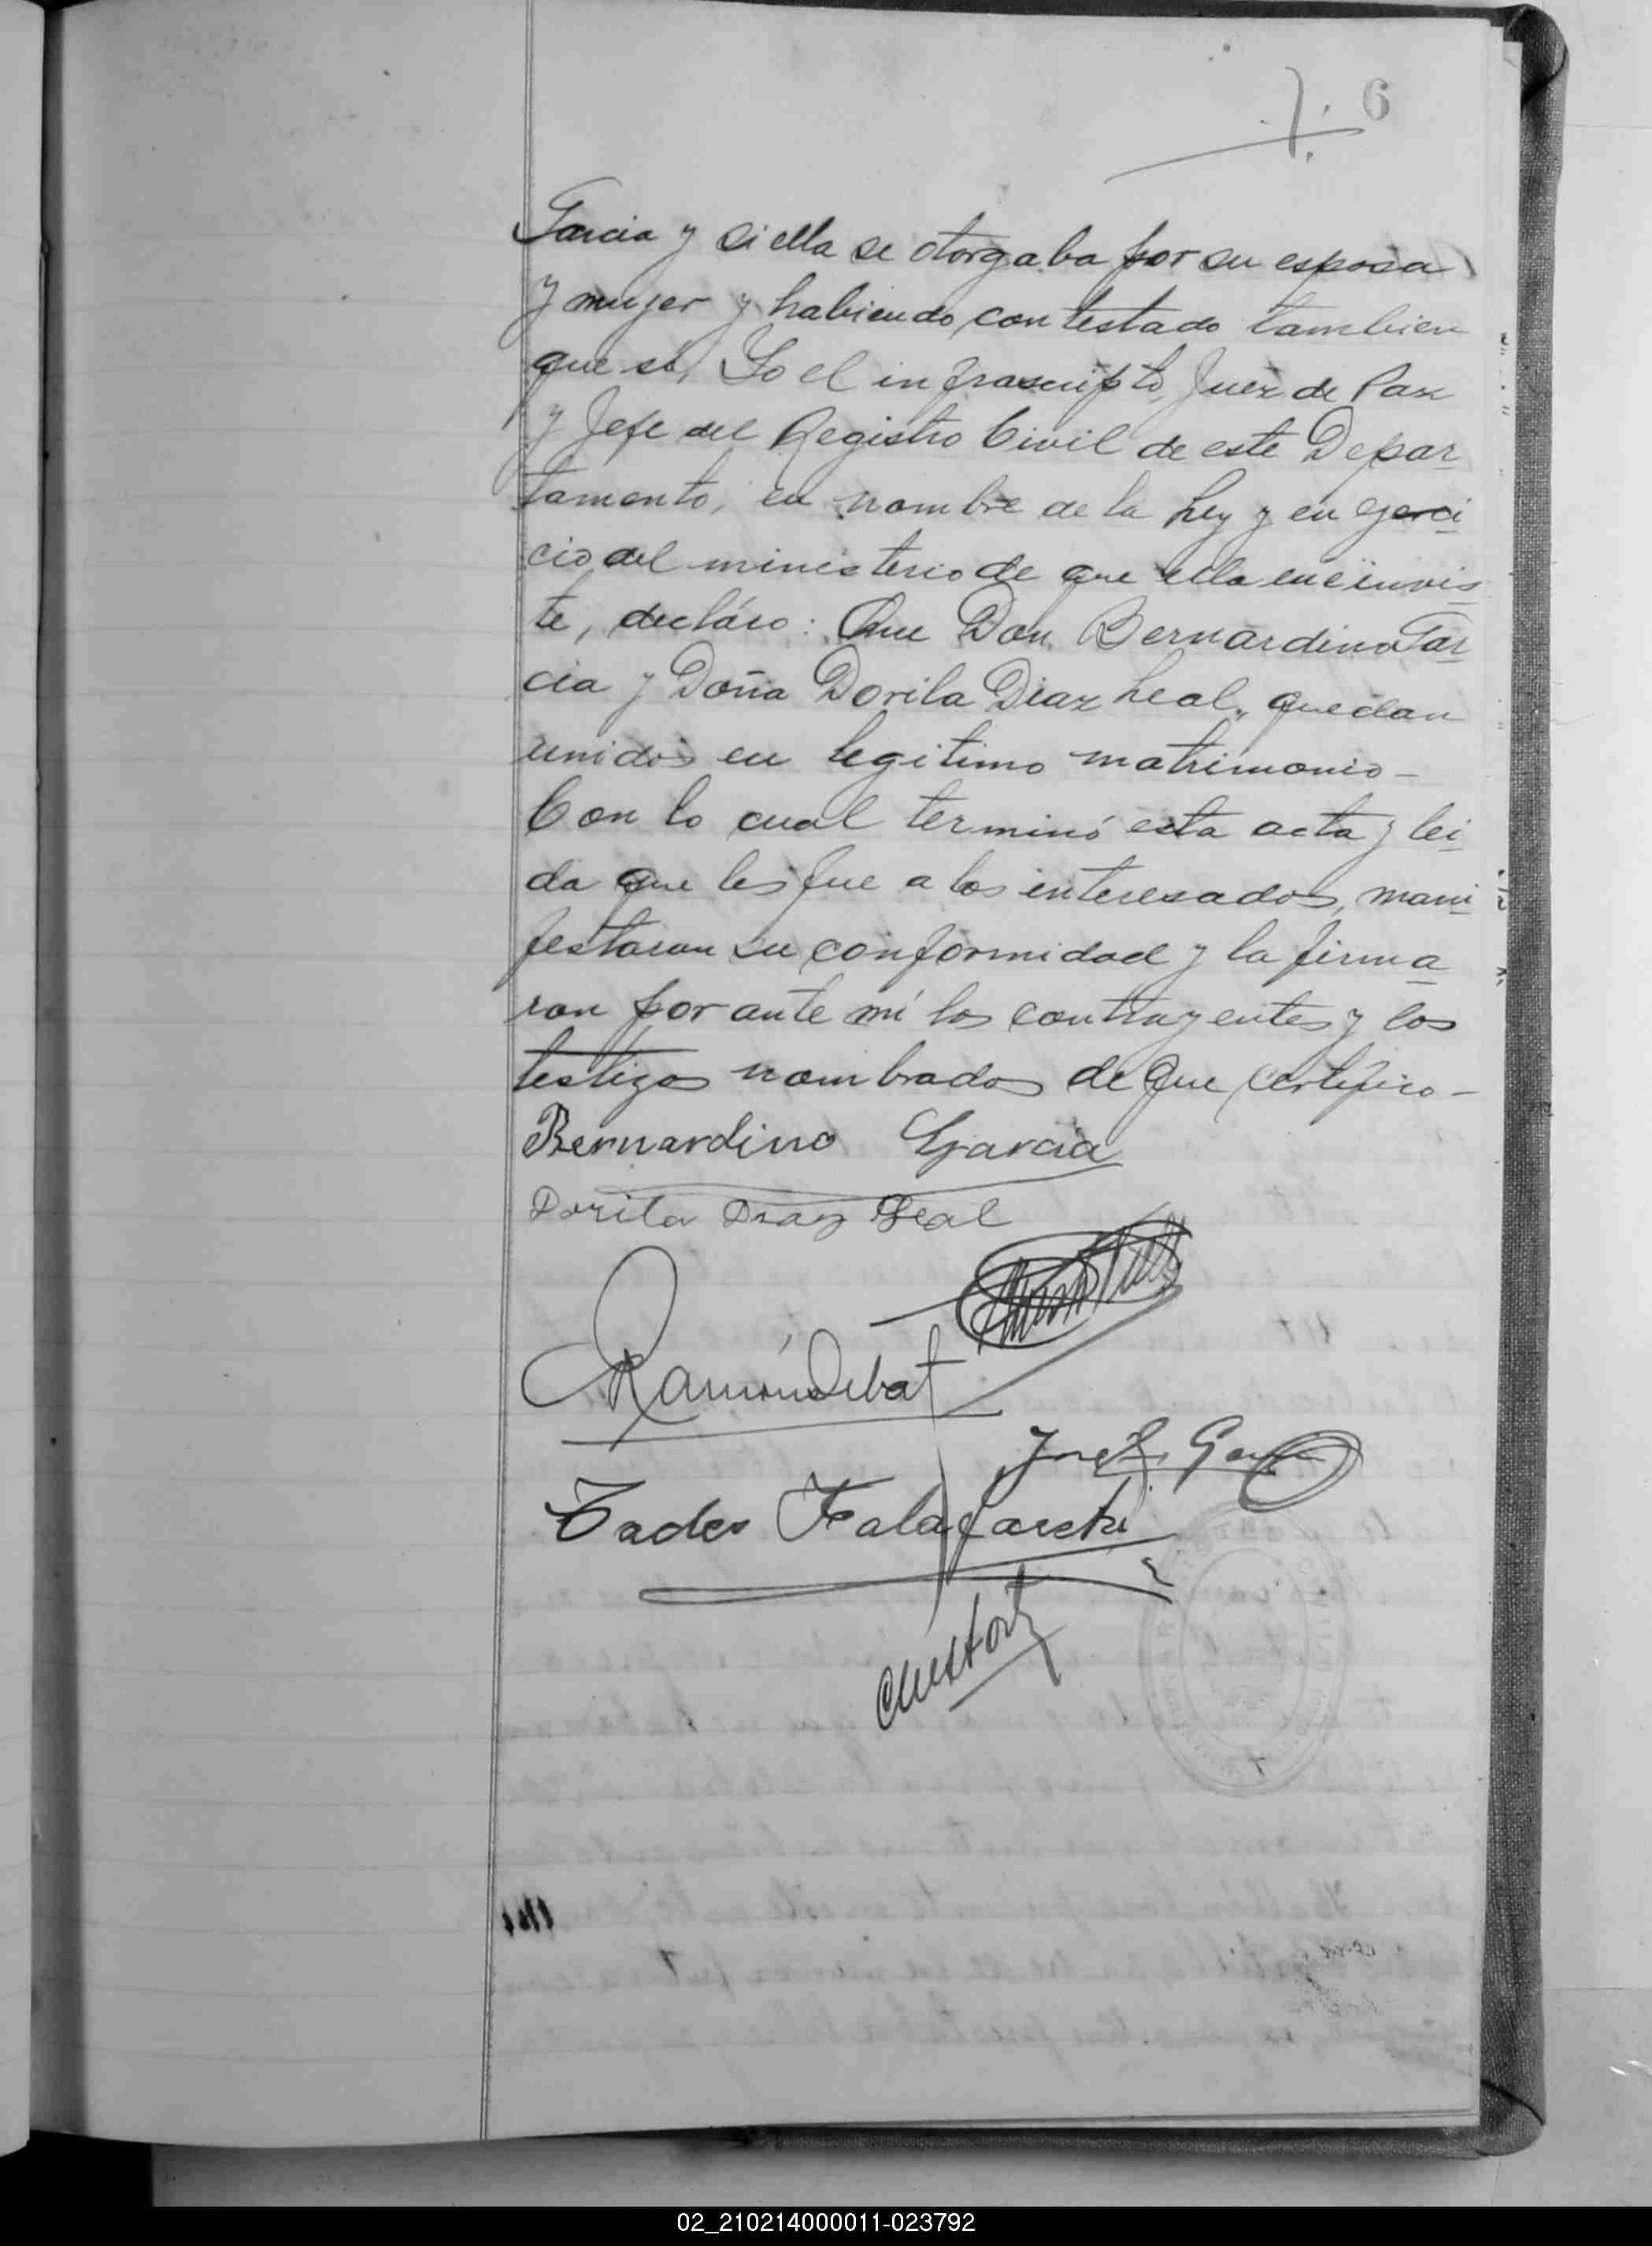 6
Garcia y si ella se otorgaba por su esposa
y mujer y habiendo contestado tambien
que sí, Yo el infrascripto, Juez de Paz
y Jefe del Registro Civil de este Depar
tamento, en nombre de la Ley y en ejerci
cio del ministerio de que ella me invis
te, decláro: Que Don Bernardino Gar
cia y Doña Dorila Diaz Leal, quedan
unidos en legitimo matrimonio –
Con lo cual terminó esta acta y lei
da que les fue a los interesados, mani
festaron su conformidad y la firma
ron por ante mí los contrayentes y los
testigos nombrados de que certifico –
Bernardino Garcia
Dorila Diaz Leal
Ramón Debat
02_210214000011-023792